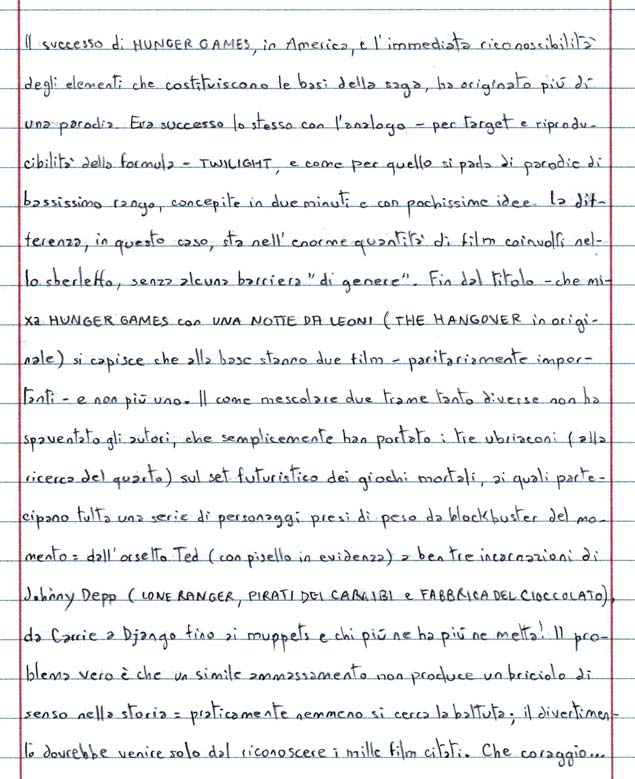 Il successo di HUNGER GAMES, in America, e l'immediata riconoscibilità
degli elementi che costituiscono le basi della saga, ha originato più di
una parodia. Era successo lo stesso con l'analogo - per target e riprodu-
cibilità della formula - TWILIGHT, e come per quello si parla di parodie di
bassissimo rango, concepite in due minuti e con pochissime idee. La dif-
ferenza, in questo caso, sta nell'enorme quantità di film coinvolti nel-
lo sberleffo, senza alcuna barriera "di genere". Fin dal titolo - che mi-
xa HUNGER GAMES con UNA NOTTE DA LEONI (THE HANGOVER in origi-
nale) si capisce che alla base stanno due film - paritariamente impor-
tanti - e non più uno. Il come mescolare due trame tanto diverse non ha
spaventato gli autori, che semplicemente han portato i tre ubriaconi (alla
ricerca del quarto) sul set futuristico dei giochi mortali, ai quali parte-
cipano tutta una serie di personaggi presi di peso da blockbuster del mo-
mento: dall'orsetto Ted (con pisello in evidenza) a ben tre incarnazioni di
Johnny Depp (LONE RANGER, PIRATI DEI CARAIBI e FABBRICA DEL CIOCCOLATO),
da Carrie a Django fino ai muppets e chi più ne ha più ne metta! Il pro-
blema vero è che un simile ammassamento non produce un briciolo di
senso nella storia: praticamente nemmeno si cerca la battuta; il divertimen-
to dovrebbe venire solo dal riconoscere i mille film citati. Che coraggio...